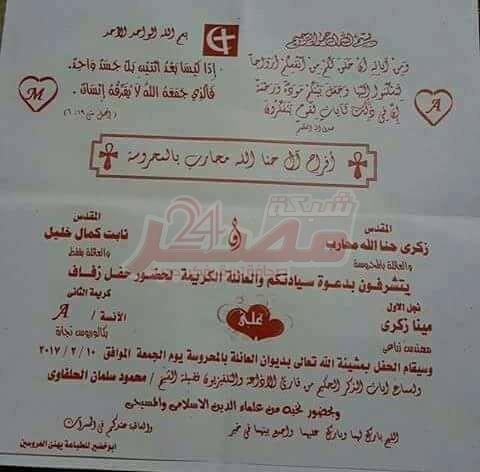 بسم الله الرحمن الرحيم
ومن آياته أن خلق لكم من أنفسكم أزواجا
لتسكنوا إليها وجعل بينكم مودة ورحمة
إن في ذلك لآيات لقوم يتفكرون
صدق الله العظيم
A
بسم الله الواحد الأحد
إذا ليسا بعد اثنين بل جسد واحد
فالذي جمعه الله لا يفرقه إنسان
(مت ١٩ : ٦)
M
أفراح آل حنا الله محارب بالمحروسة
شبكة
مصر 24
المقدس
زكرى حنا الله محارب
والعائلة بالمحروسة
و
المقدس
ثابت كمال خليل
والعائلة بقفط
يتشرفون بدعوة سيادتكم والعائلة الكريمة لحضور حفل زفاف
نجل الاول
مينا زكرى
مهندس زراعي
على
كريمة الثانى
الآنسة / A
بكالوريوس تجارة
وسيقام الحفل بمشيئة الله تعالى بديوان العائلة بالمحروسة يوم الجمعة الموافق ١٠ / ٢ / ٢٠١٧
ولسماع آيات الذكر الحكيم من قارئ الاذاعة والتلفزيون فضيلة الشيخ / محمود سلمان الحلفاوى
وبحضور نخبة من علماء الدين الاسلامى والمسيحى
اللهم بارك لهما وبارك عليهما واجمع بينهما فى خير
والعاقبة عندكم فى المسرات
ابوخضير للطباعة يهنئ العروسين